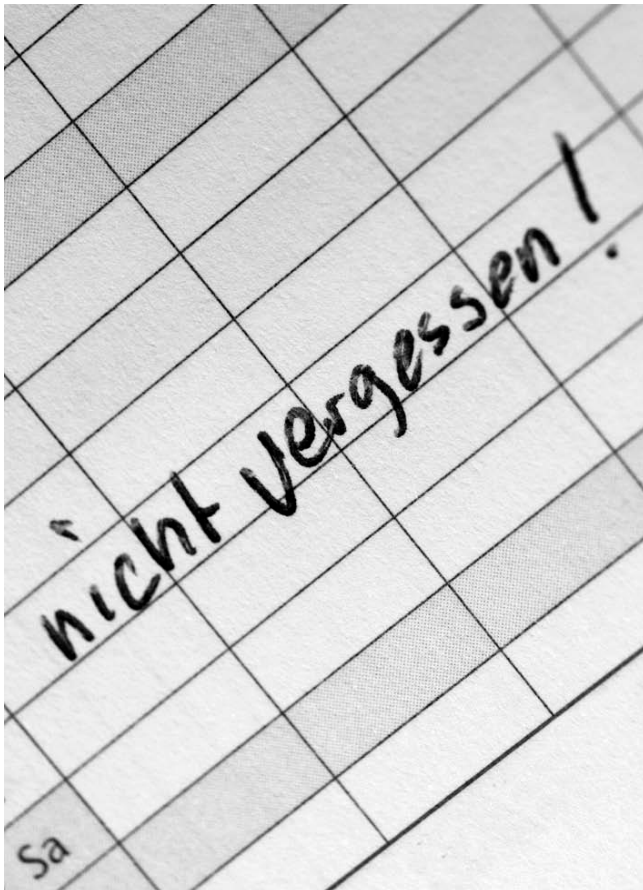 nicht vergessen!
Sa